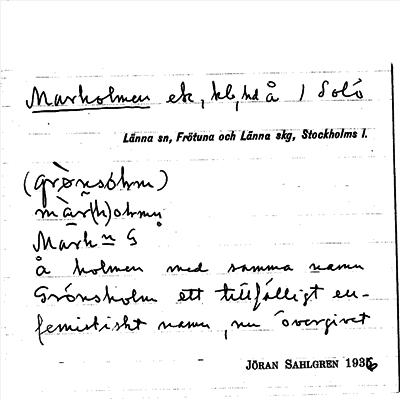 Marholmen ek, kl, hd å / Solö
Länna sn, Frötuna och Länna skg, Stockholms l.
(grònsöhm)
màr(h)ohmņ
Mark n G
å holmen med samma namn
Grönsholm ett tillfälligt eu-
femistiskt namn, nu övergivet
JÖRAN SAHLGREN 1936